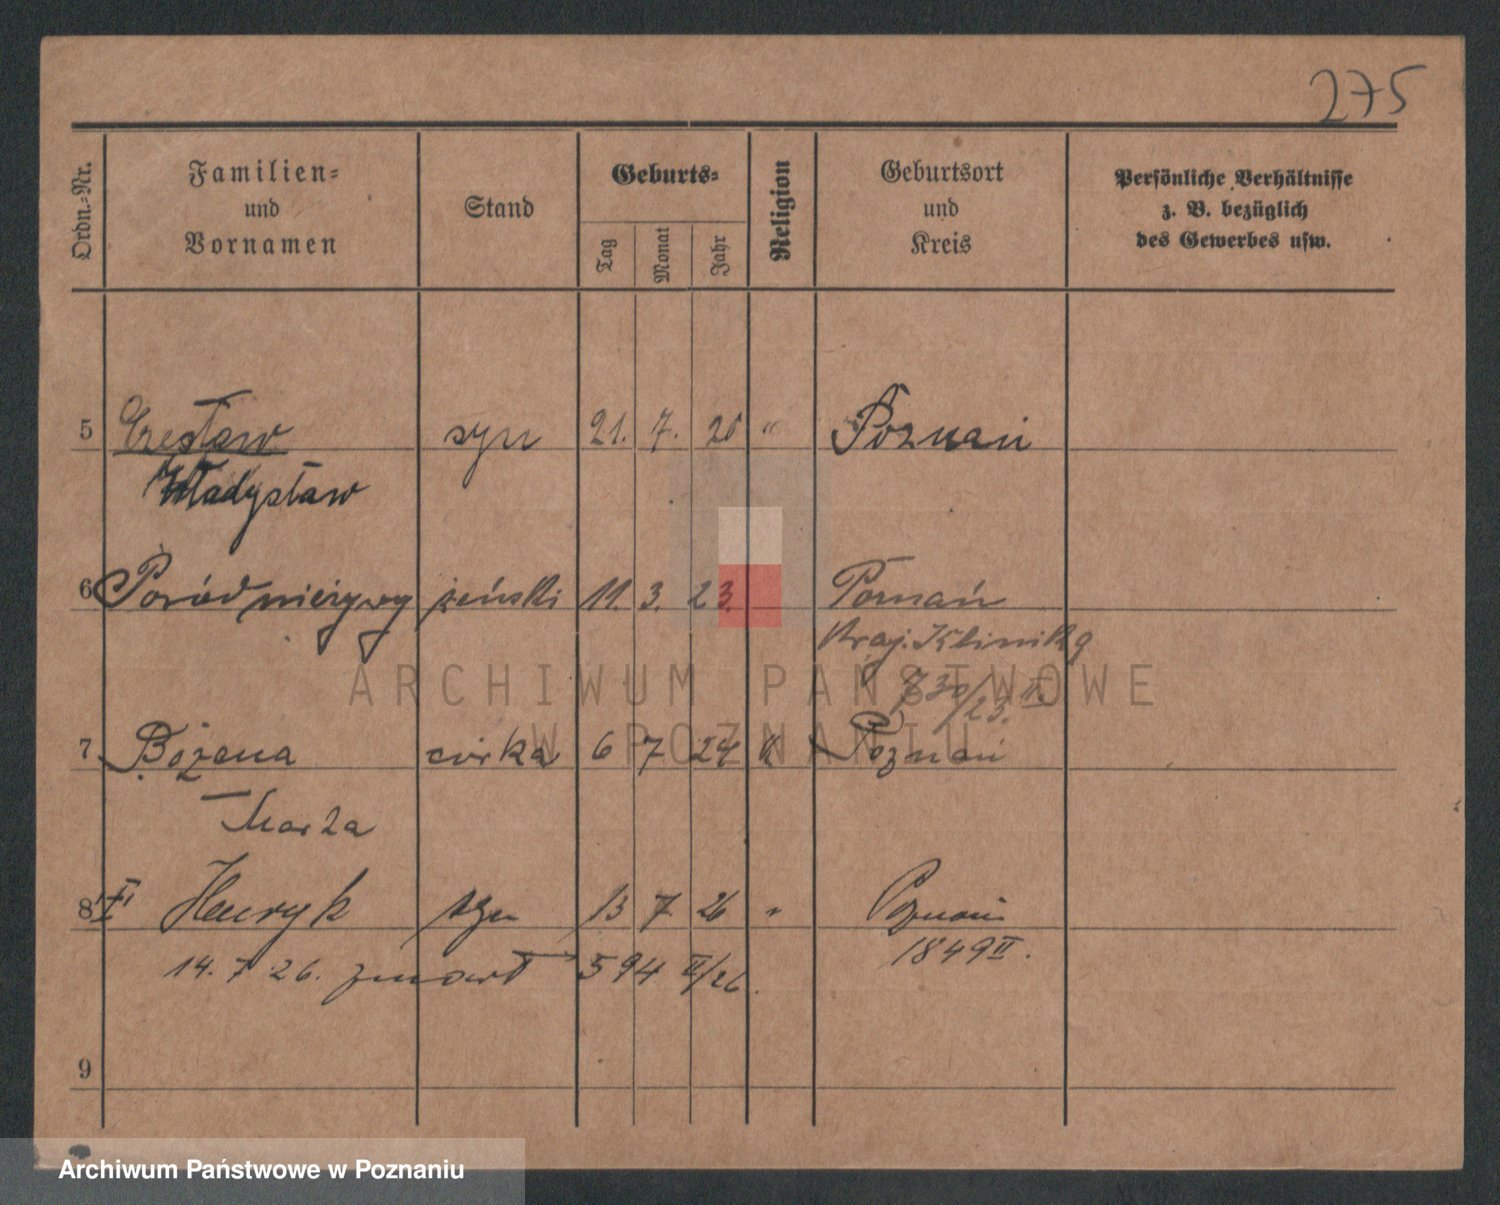 275
Ordn.-Nr.
Familien-
und
Vornamen
Stand
Geburts-
Tag
Monat
Jahr
Religion
Geburtsort
und
Kreis
Persönliche Verhältnisse
z. B. bezüglich
des Gewerbes usw.
5 Czesław syn 21. 7. 20 " Poznań
Władysław
6 Poród nieżywy żeński 11. 3. 23. Poznań
Kraj. Klinika
730/23. II.
7 Bożena córka 6 7 24 k Poznań
Marża
8 Henryk syn 13 7 26 " Poznań
1849 II.
14. 7. 26. zmarł 594 II/26.
9
ARCHIWUM PAŃSTWOWE
W POZNANIU
Archiwum Państwowe w Poznaniu